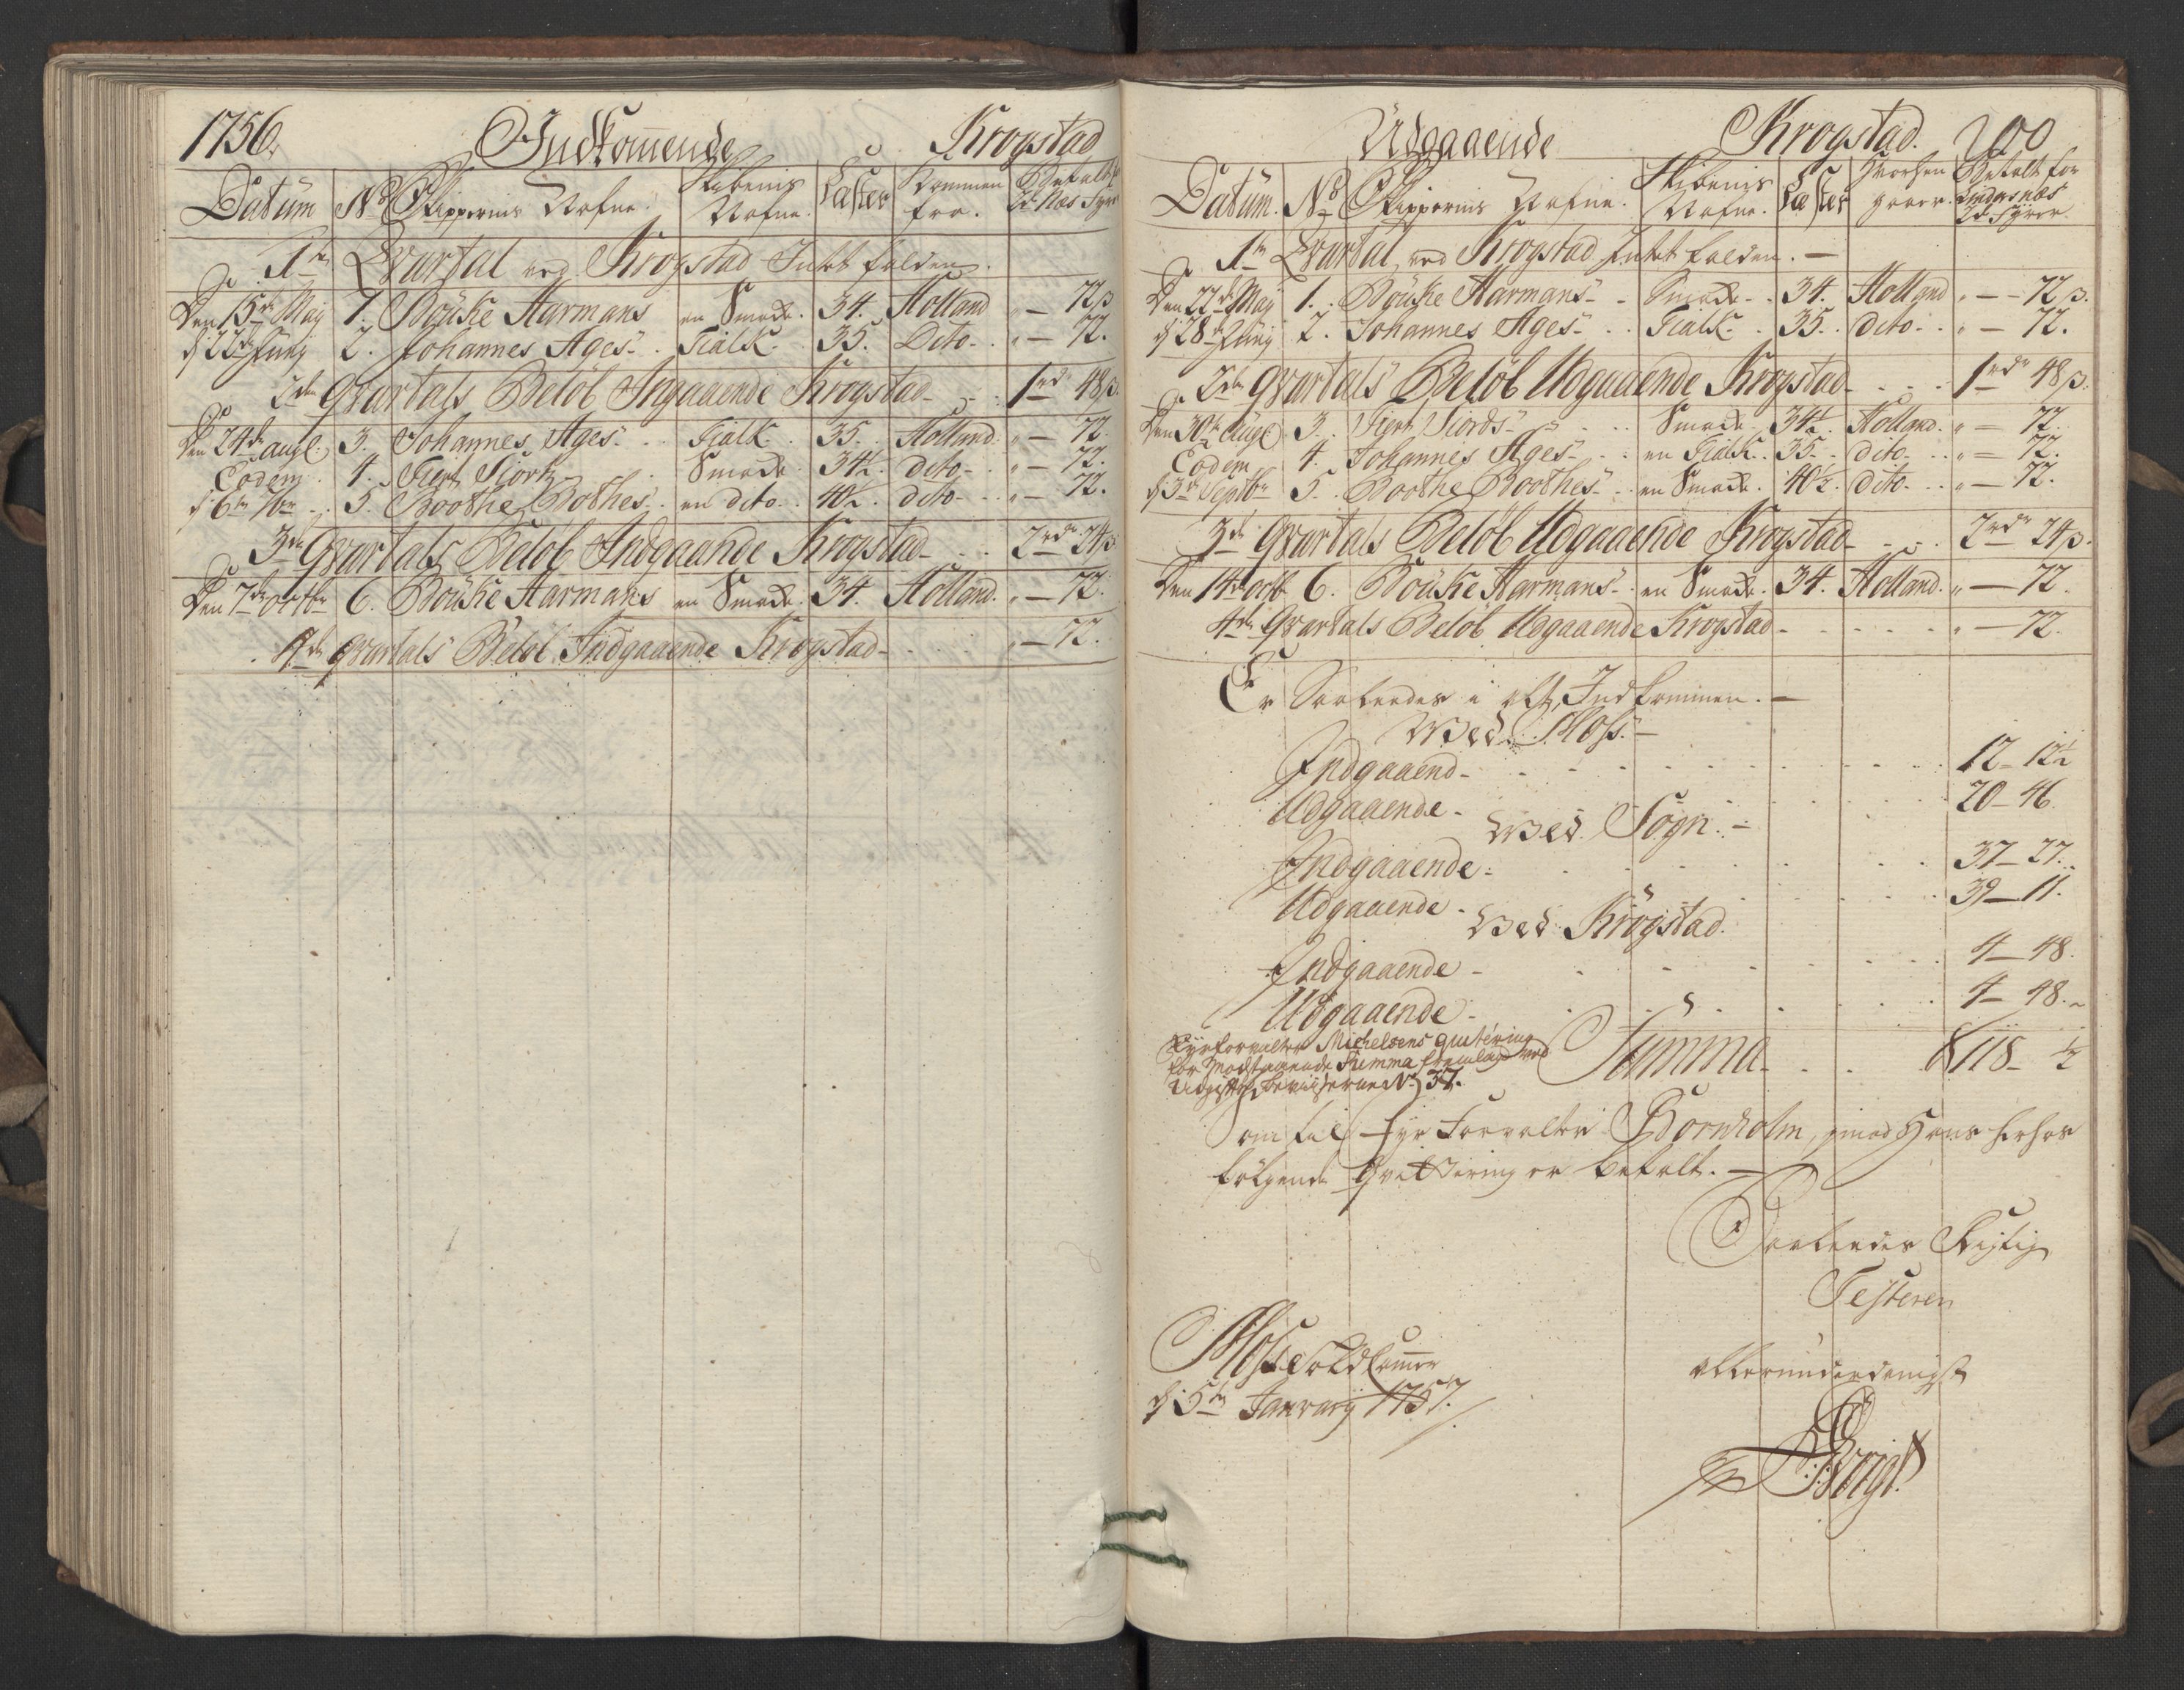 1756. Indkommende Krogstad
Datum No Skippernis Nafne. Skibenis Nafne. Læster Kommen fra. Betalt 2de Næs Fyre
1te Qvartal ved Krogstad Intet falden.
Den 15de May 1. Bouke Harmans en Smack. 34. Holland " — 72ß
d 22de Junij 2. Johannes Ages. Tialk. 35. Dito " — 72.
2den Qvartals Beløb Ingaaende Krogstad 1rdr 48ß
Den 24de augl. 3. Johannes Ages. Tialk. 35. Holland. " — 72.
Eodem 4. Tiert Siorh Smack 34½. dito " — 72.
d 6te 7br 5. Boothe Bothes en dito 40½. dito " — 72.
3de Qvartals Beløb Indgaaende Krogstad 2rdr 24ß
Den 7de octbr 6. Bouke Harmans en Smack. 34. Holland. " — 72.
4de qvartals Beløb Indgaaende Krogstad " — 72.
Udgaaende Krogstad. 200
Datum. No Skippernis Nafne. Skibenis Nafne. Læster Hvorhen gaaer. Betalt for Lindesnes 2de Fyrer.
1te Qvartal ved Krogstad Intet falden. —
Den 22de May 1. Bouke Harmans Smack 34. Holland " — 72ß.
d 28de Junij 2. Johannes Ages Tialk 35. dito " — 72.
2de Qvartals Beløb Udgaaende Krogstad 1rdr 48ß.
Den 30te Augl. 3. Tiert Siords Smack 34½. Holland. " — 72.
Eodem 4. Johannes Ages en Tialk 35. dito " — 72.
d 3de Septbr 5. Boothe Boothes en Smack. 40½. dito " — 72.
3de Qvartals Beløb Udgaaende Krogstad 2rdr 24ß.
Den 14de octb 6. Bouke Harmans en Smack. 34. Holland. " — 72.
4de Qvartals Beløb Udgaaende Krogstad " — 72.
Er Saaledes i alt Indkommen. —
Wed Moss. —
Indgaaend 12 — 12½
Udgaaende 20 — 46.
Wed Sogn. —
Indgaaende 37 — 27.
Udgaaende 39 — 11.
Wed Krogstad.
Indgaaende 4 — 48.
Udgaaende 4 — 48.
Fyrforvalter Michelsens quitering
for Modstaaende Summa fremlagt ved
Udgifts Beviiserne No 37.
Summa 118 — ½
som til Fyr Forvalter Bornholm, imod Hans herhos
følgende Qvittering er betalt. —
Saaledes Rigtig
Testeren
Moss Toldkammer
d. 5te January 1757.
allerunderdanigst
Voigt